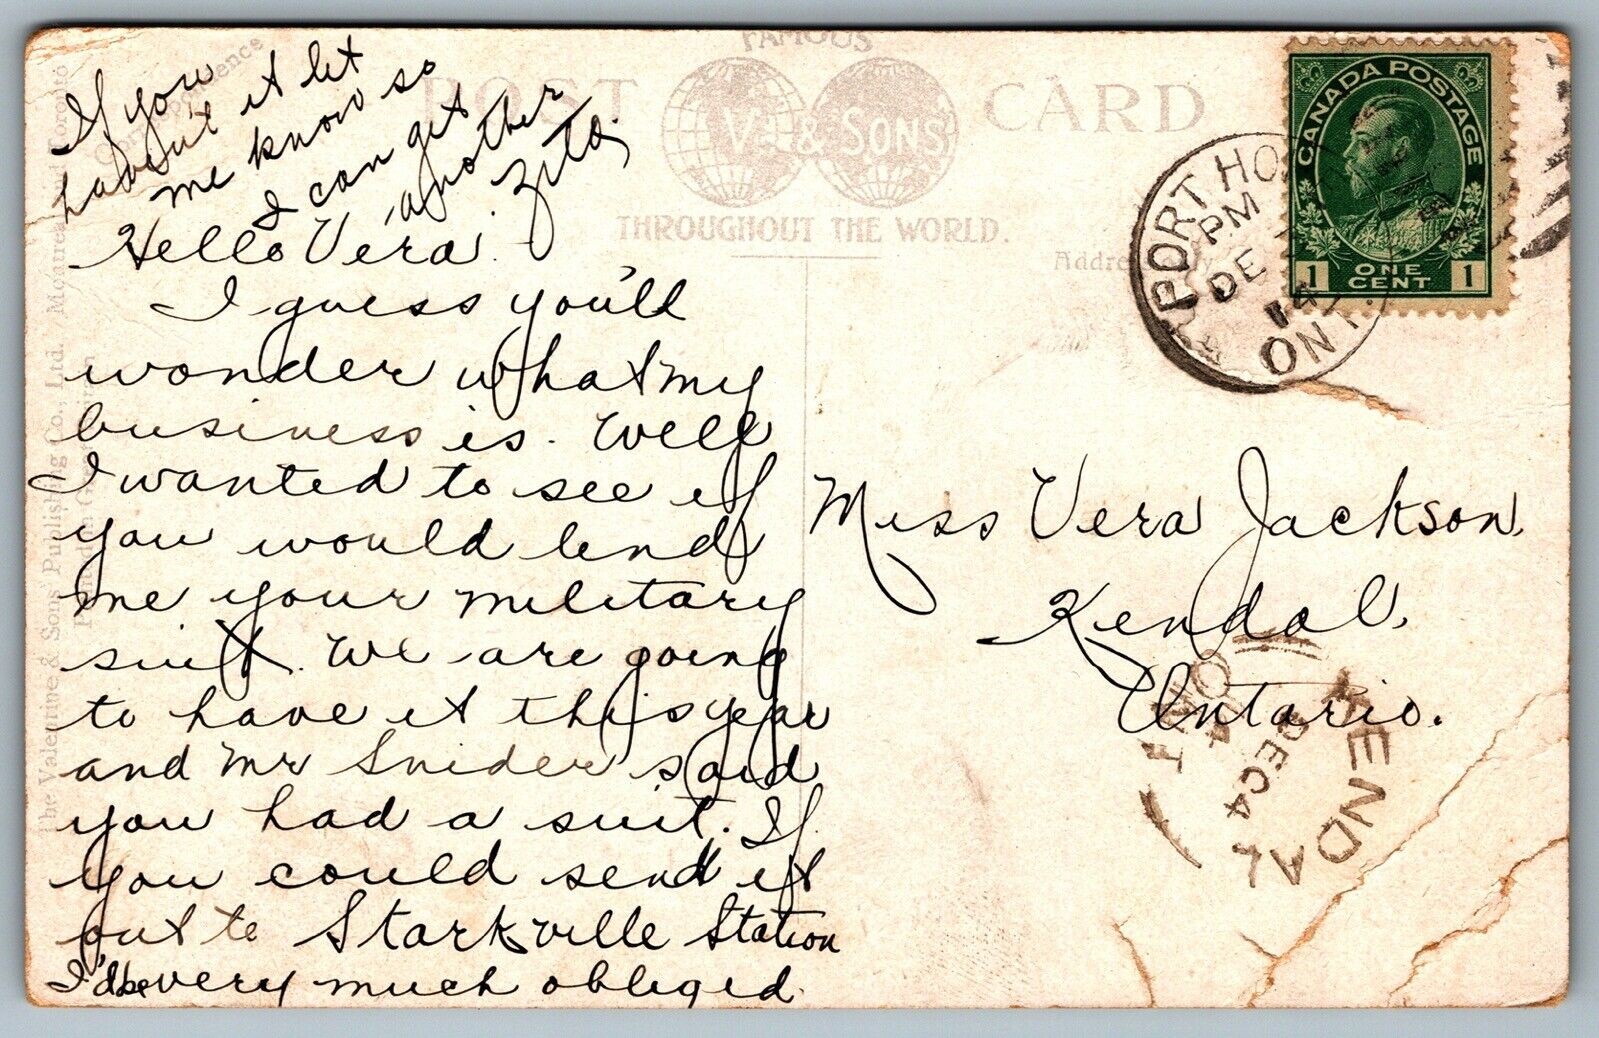 Hello Vera.
I guess you'll
wonder what my
business is. Well
I wanted to see if
you would lend
me your military
suit. We are going
to have it this year
and Mr Snider said
you had a suit. If
you could send it
out to Starkville Station
I'd be very much obliged.
If you
haven't it let
me know so
I can get
another
Zita.
FAMOUS
POST CARD
V. & SONS
THROUGHOUT THE WORLD.
Correspondence
Address only
The Valentine & Sons' Publishing Co., Ltd. Montreal and Toronto
Printed in Great Britain
CANADA POSTAGE
1 ONE CENT 1
PORT HO
PM
DE
14
ONT.
Miss Vera Jackson,
Kendal,
Ontario.
KENDAL
DEC 4
ONT